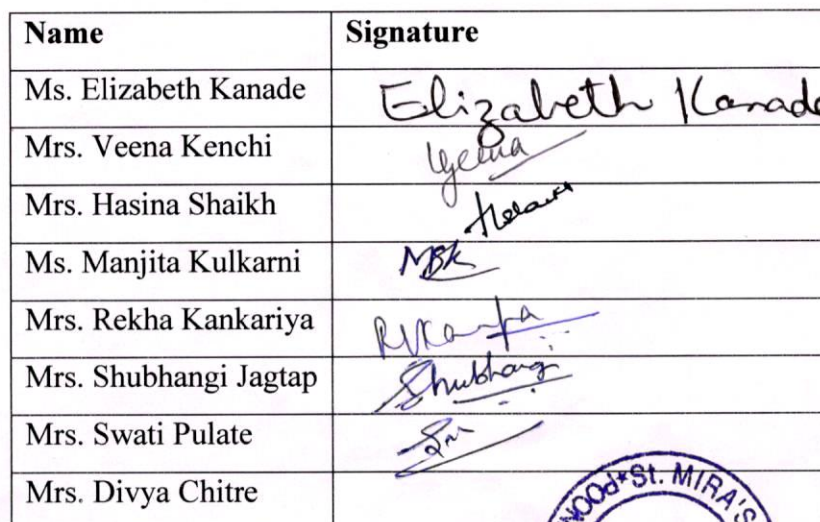 Name Signature
Ms. Elizabeth Kanade Elizabeth Kanade
Mrs. Veena Kenchi Veena
Mrs. Hasina Shaikh
Ms. Manjita Kulkarni MBK
Mrs. Rekha Kankariya
Mrs. Shubhangi Jagtap Shubhangi
Mrs. Swati Pulate
Mrs. Divya Chitre
POONA*St. MIRA'S